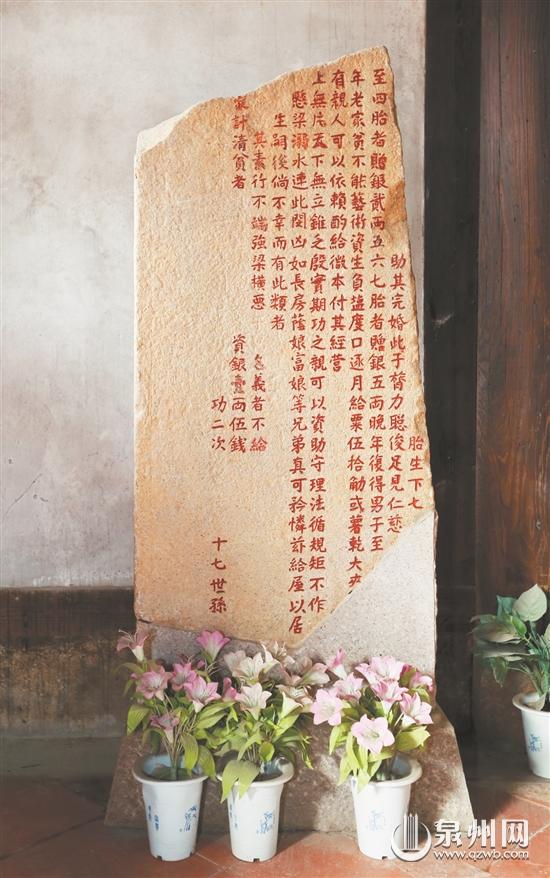 胎生下七
助其完婚此于膂力聪俊足見仁慈
至四胎者贈銀貳兩五六七胎者贈銀五兩晚年復得男子至
年老家貧不能藝術資生負逋度口逐月給粟伍拾觔或薯乾大夾
有親人可以依賴酌給微本付其經營
上無片瓦下無立錐之殷實期功之親可以資助守理法循規矩不作
懸梁溺水連此閔凶如長房蔭娘富娘等兄弟真可矜憐茲給屋以居
生嗣後倘不幸而有此類者
其素行不端強梁横惡 義者不給
家計清貧者 資銀壹兩伍錢
功二次
十七世孫
泉州网
www.qzwb.com